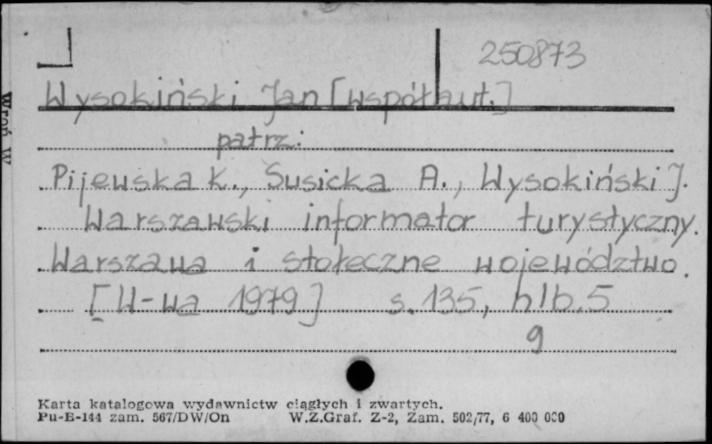 250873
Wysokiński Jan [współaut.]
patrz:
Pijewska K., Susicka A., Wysokiński J.
Warszawski informator turystyczny.
Warszawa i stołeczne województwo.
[W-wa 1979] s. 135, nlb. 5
g
Karta katalogowa wydawnictw ciągłych i zwartych.
Pu-B-144 zam. 567/DW/On W.Z.Graf. Z-2, Zam. 502/77, 6 400 000